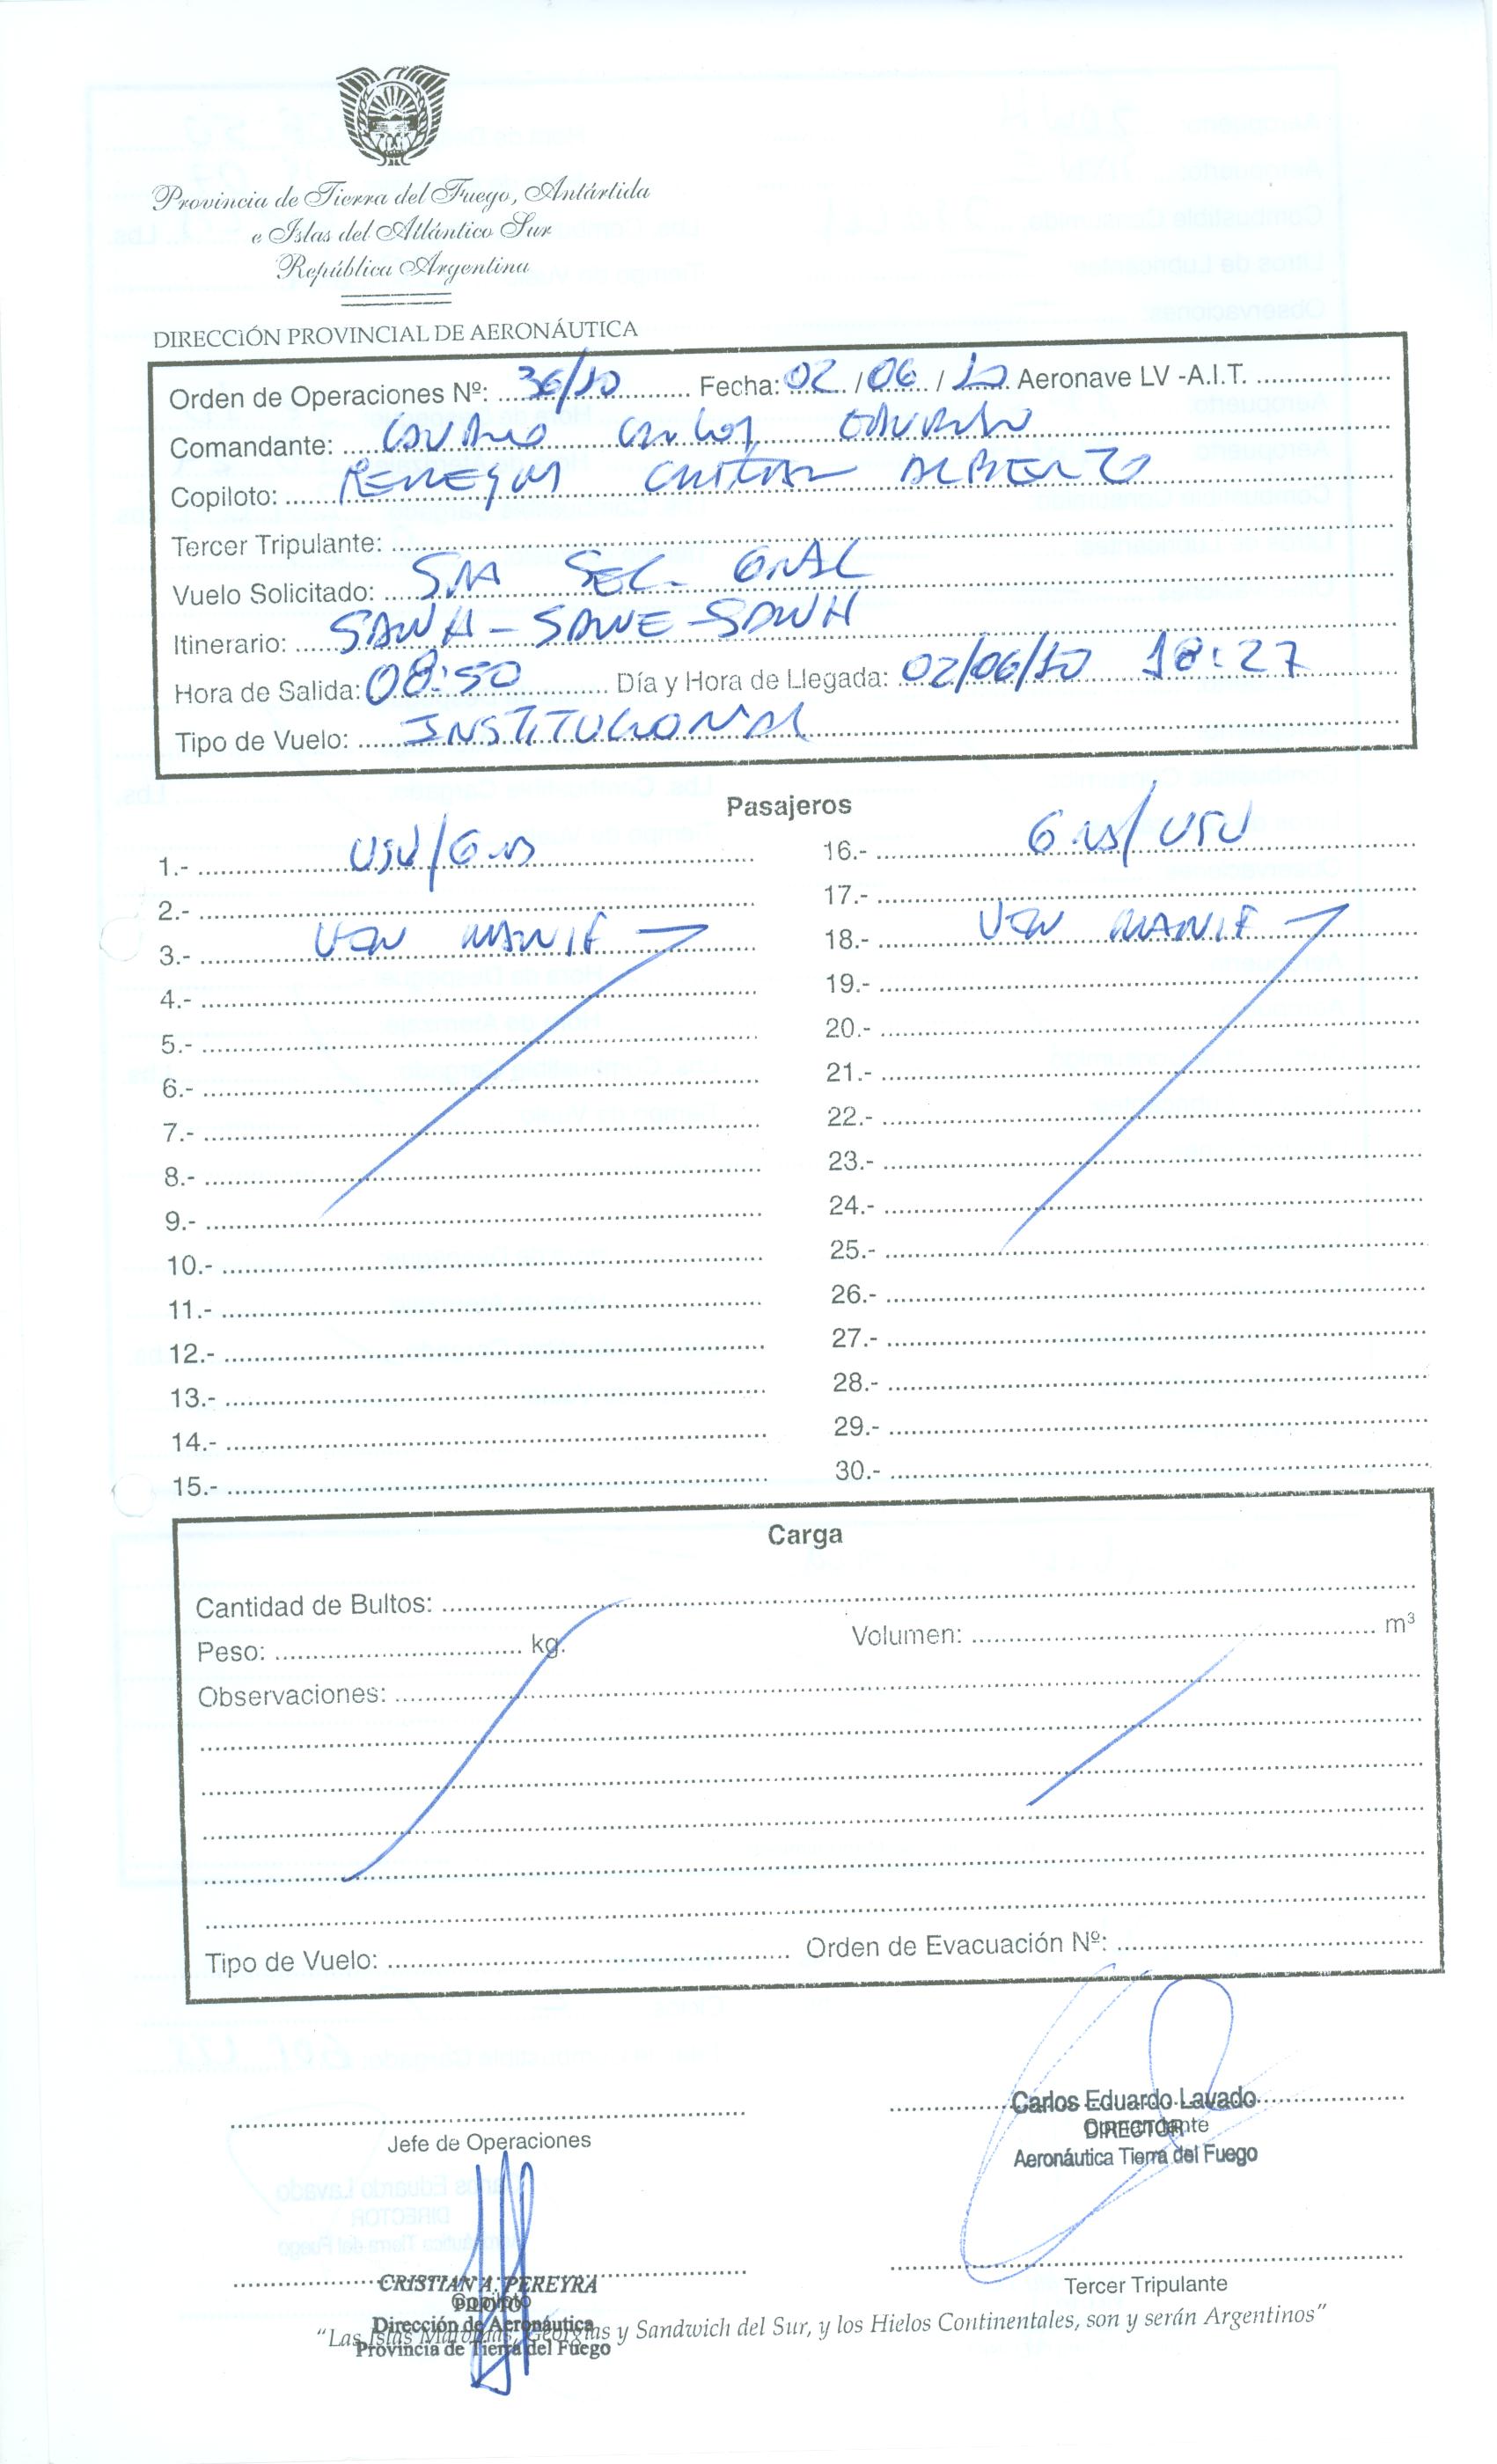 Provincia de Tierra del Fuego, Antártida
e Islas del Atlántico Sur
República Argentina
DIRECCIÓN PROVINCIAL DE AERONÁUTICA
Orden de Operaciones Nº: 36/10 Fecha: 02/06/10 Aeronave LV -A.I.T.
Comandante: LAVADO CARLOS EDUARDO
Copiloto: PEREYRA CRISTIAN ALBERTO
Tercer Tripulante:
Vuelo Solicitado: SEC. GRAL
Itinerario: SAWH - SAWE - SAWH
Hora de Salida: 08:50 Día y Hora de Llegada: 02/06/10 18:27
Tipo de Vuelo: INSTITUCIONAL
Pasajeros
1.- USU/
2.-
3.- VER MANIF
4.-
5.-
6.-
7.-
8.-
9.-
10.-
11.-
12.-
13.-
14.-
15.-
16.- /USU
17.-
18.- VER MANIF
19.-
20.-
21.-
22.-
23.-
24.-
25.-
26.-
27.-
28.-
29.-
30.-
Carga
Cantidad de Bultos:
Peso: kg. Volumen: m³
Observaciones:
Tipo de Vuelo: Orden de Evacuación Nº:
Jefe de Operaciones
Carlos Eduardo Lavado
Comandante
DIRECTOR
Aeronáutica Tierra del Fuego
CRISTIAN A. PEREYRA
Copiloto
PILOTO
Dirección de Aeronáutica
Provincia de Tierra del Fuego
Tercer Tripulante
“Las Islas Malvinas, Georgias y Sandwich del Sur, y los Hielos Continentales, son y serán Argentinos”